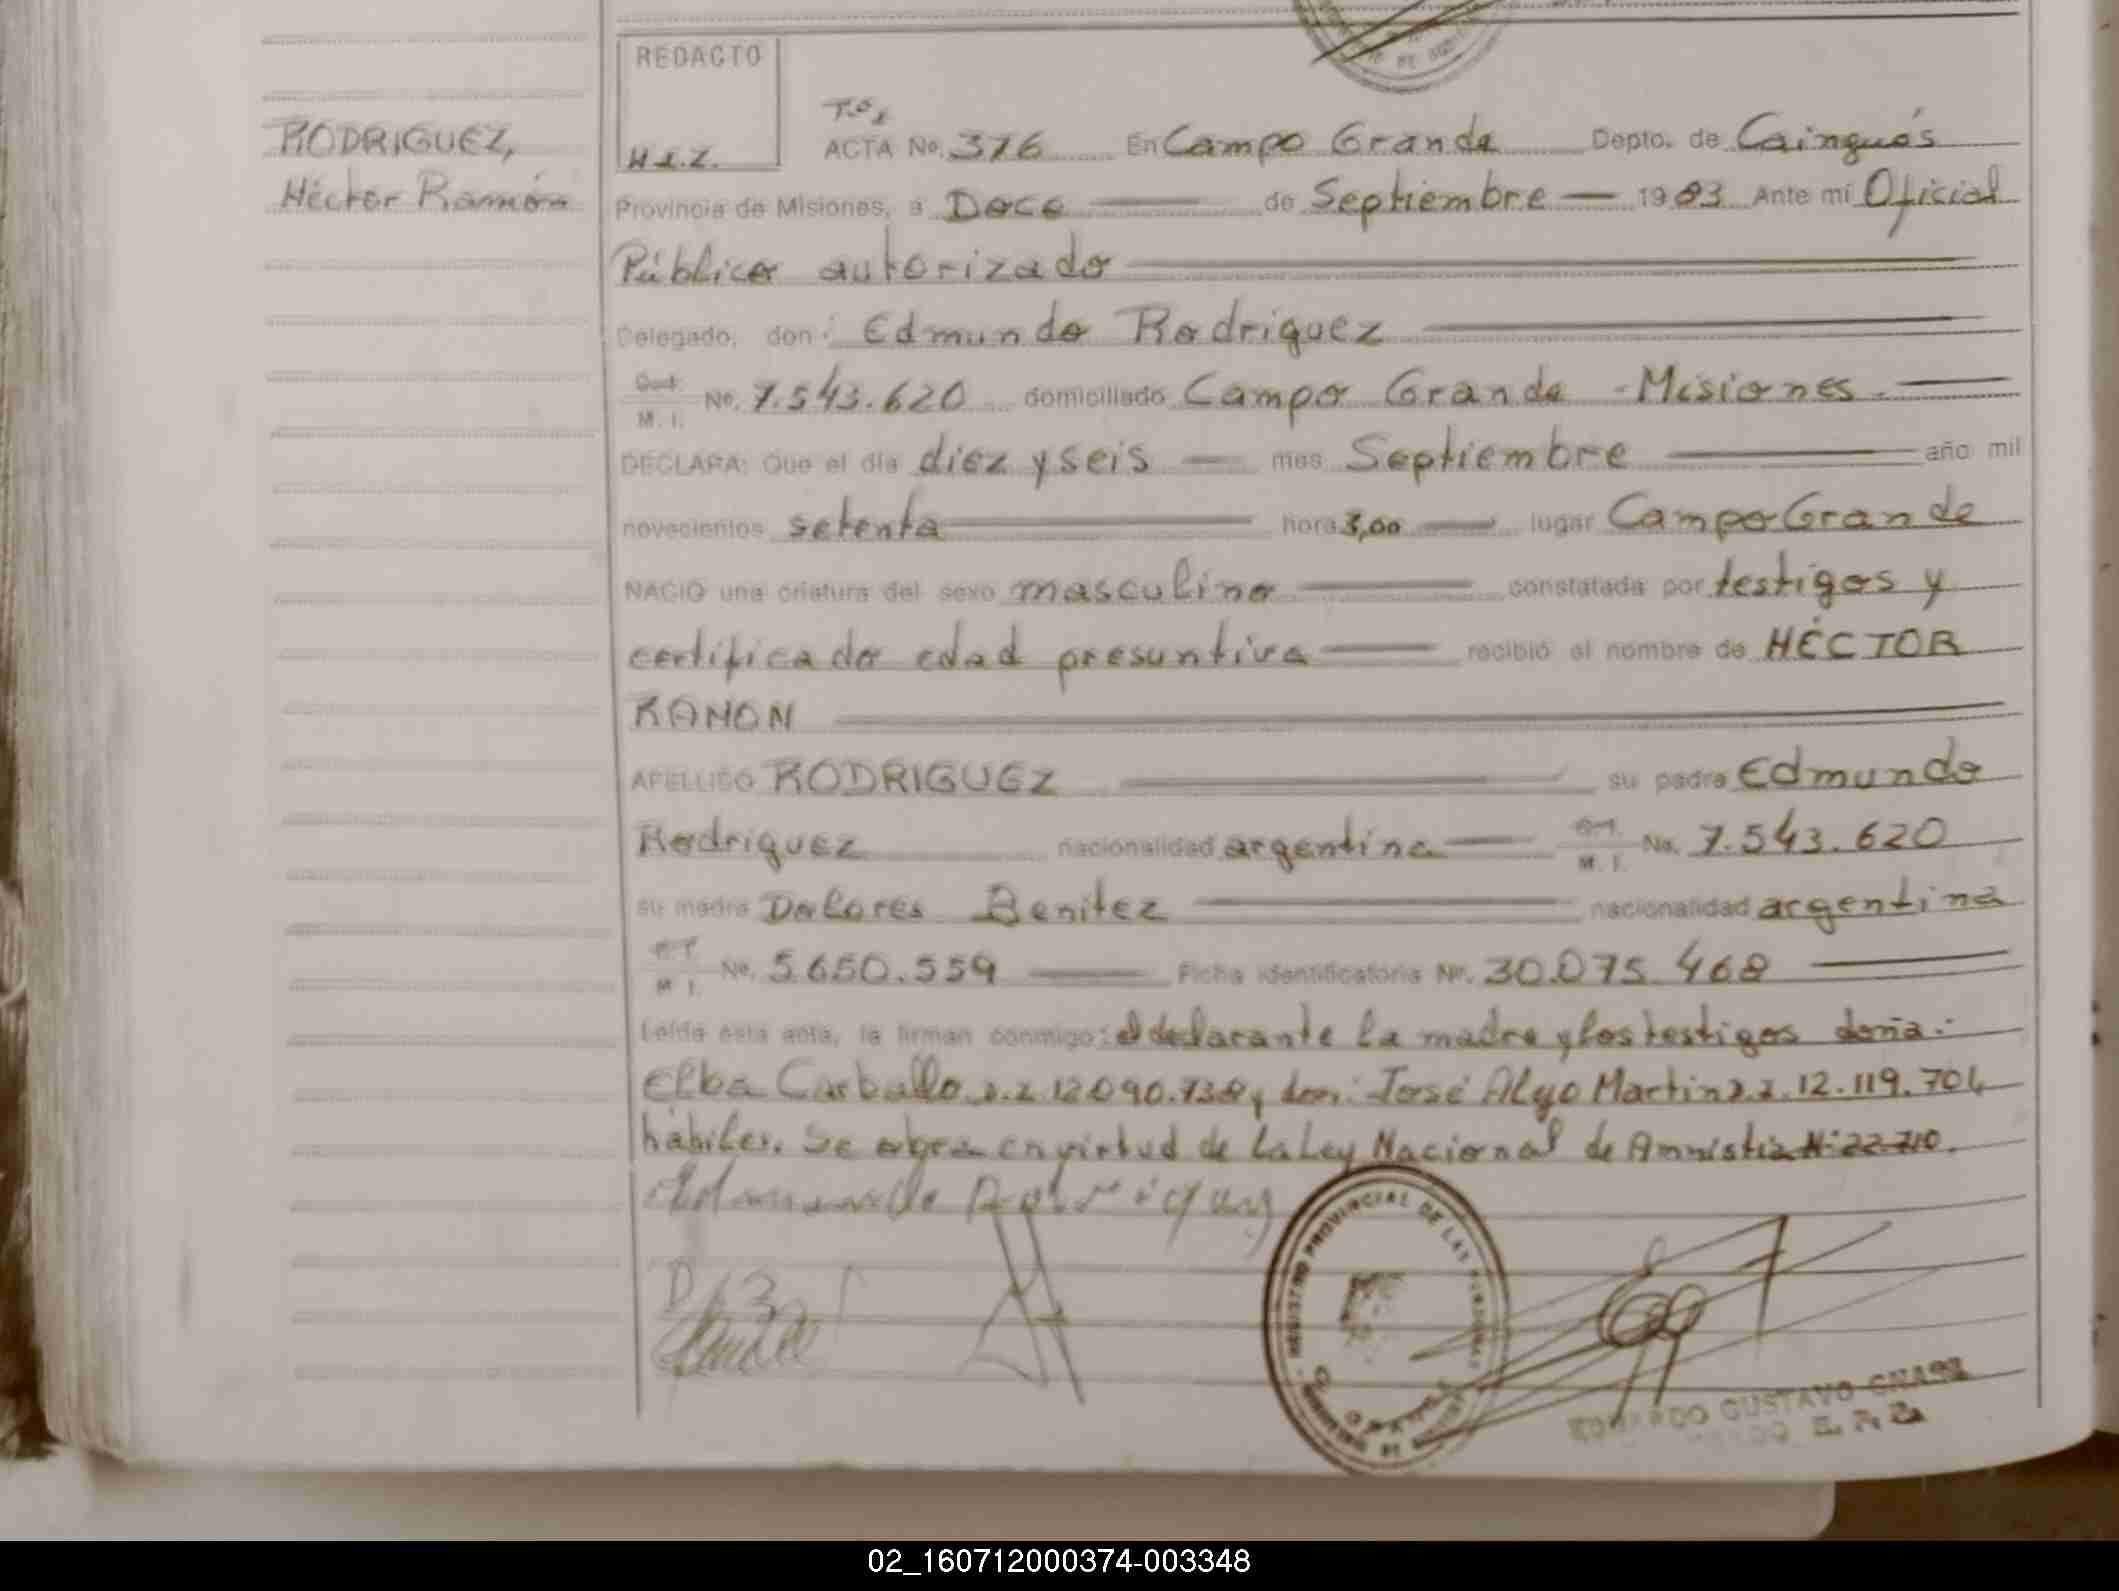 REDACTO
H.I.Z.
RODRIGUEZ,
Héctor Ramón
Tº I
ACTA No. 376 En Campo Grande Depto. de Cainguás
Provincia de Misiones, a Doce de Septiembre 1983 Ante mí Oficial
Público autorizado
Delegado, don: Edmundo Rodriguez
M. I. No. 7.543.620 domiciliado Campo Grande - Misiones.
DECLARA: Que el día diez y seis mes Septiembre año mil
novecientos setenta hora 3,00 lugar Campo Grande
NACIO una criatura del sexo masculino constatada por testigos y
certificado edad presuntiva recibió el nombre de HÉCTOR
RAMON
APELLIDO RODRIGUEZ su padre Edmundo
Rodriguez nacionalidad argentina M. I. No. 7.543.620
su madre Dolores Benitez nacionalidad argentina
M. I. No. 5.650.559 Ficha identificatoria Nº. 30.075.468
Leída esta acta, la firman conmigo: el declarante la madre y los testigos doña:
Elba Carballo 12.090.738 y don: José Algo Martin 12.119.704
hábiles. Se labra en virtud de la Ley Nacional de Amnistia Nº 22.710.
Edmundo Rodriguez
REGISTRO PROVINCIAL DE LAS PERSONAS
EDUARDO GUSTAVO
02_160712000374-003348